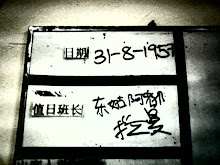 日期 31-8-1957
值日班长 东姑阿都
拉曼